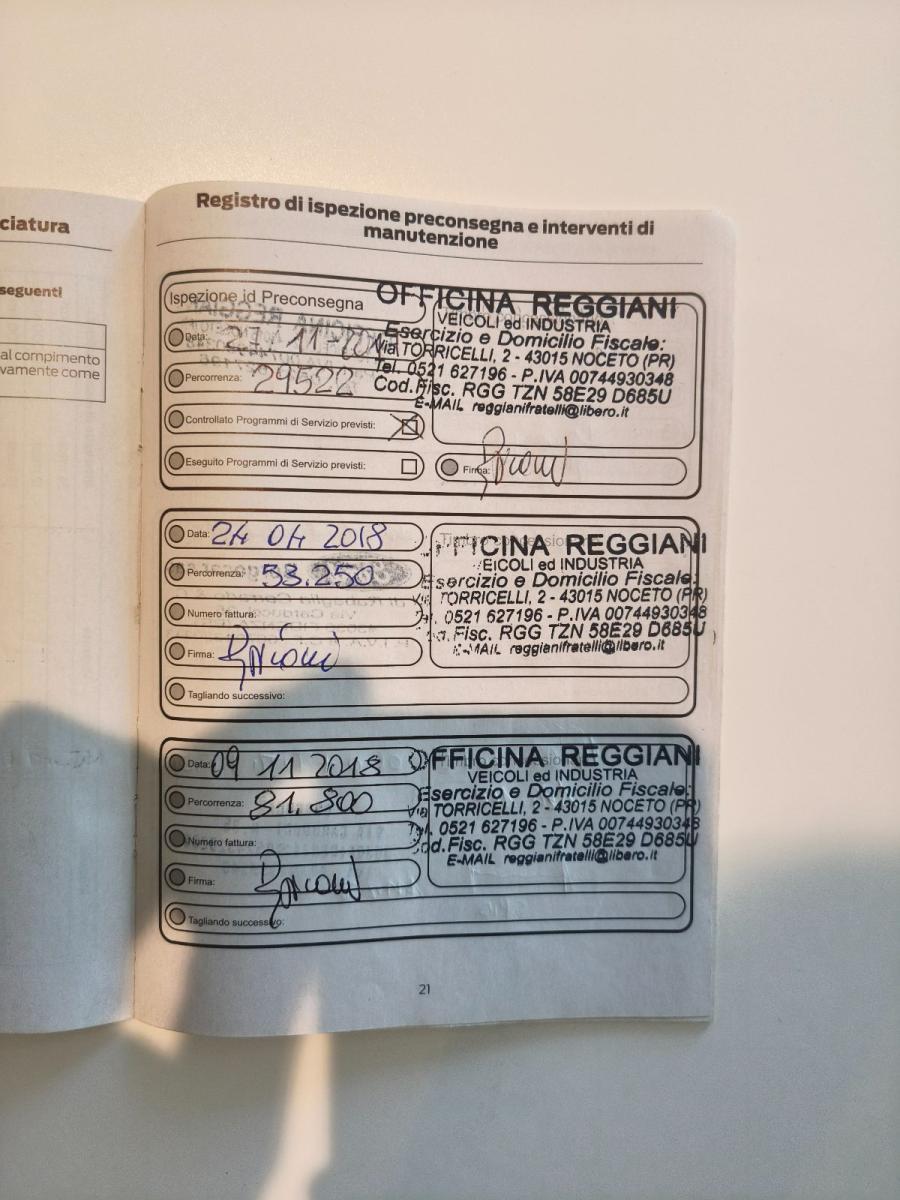 ciatura
seguenti
al compimento
vamente come
Registro di ispezione preconsegna e interventi di
manutenzione
Ispezione id Preconsegna
Data: 27 11
Percorrenza: 29522
Controllato Programmi di Servizio previsti:
Eseguito Programmi di Servizio previsti:
OFFICINA REGGIANI
VEICOLI ed INDUSTRIA
Esercizio e Domicilio Fiscale:
Via TORRICELLI, 2 - 43015 NOCETO (PR)
Tel. 0521 627196 - P.IVA 00744930348
Cod.Fisc. RGG TZN 58E29 D685U
E-MAIL reggianifratelli@libero.it
Firma:
Data: 24 04 2018
Percorrenza: 53.250
Numero fattura:
Firma:
Tagliando successivo:
FICINA REGGIANI
VEICOLI ed INDUSTRIA
Esercizio e Domicilio Fiscale:
TORRICELLI, 2 - 43015 NOCETO (PR)
0521 627196 - P.IVA 00744930348
Fisc. RGG TZN 58E29 D685U
E-MAIL reggianifratelli@libero.it
Data: 09 11 2018
Percorrenza: 81.800
Numero fattura:
Firma:
Tagliando successivo:
OFFICINA REGGIANI
VEICOLI ed INDUSTRIA
Esercizio e Domicilio Fiscale:
Via TORRICELLI, 2 - 43015 NOCETO (PR)
Tel. 0521 627196 - P.IVA 00744930348
Cod.Fisc. RGG TZN 58E29 D685U
E-MAIL reggianifratelli@libero.it
21